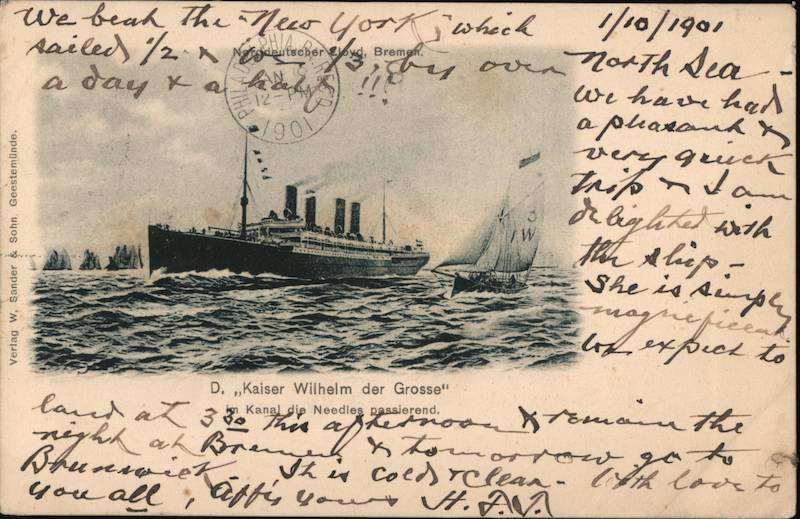 We beat the "New York", which
sailed 1/2 & by over
a day & a half !!!
Norddeutscher Lloyd, Bremen.
PHILADELPHIA, PA. REC'D
JAN
12- M
1901
1/10/1901
North Sea -
We have had
a pleasant &
very quick
trip & I am
delighted with
the ship -
She is simply
magnificent
We expect to
land at 3 30 this afternoon & remain the
night at Bremen & tomorrow go to
Brunswick. It is cold & clear - With love to
you all, Aff'y yours H. F. J.
D. „Kaiser Wilhelm der Grosse"
im Kanal die Needles passierend.
Verlag W. Sander & Sohn. Geestemünde.
3
1 W